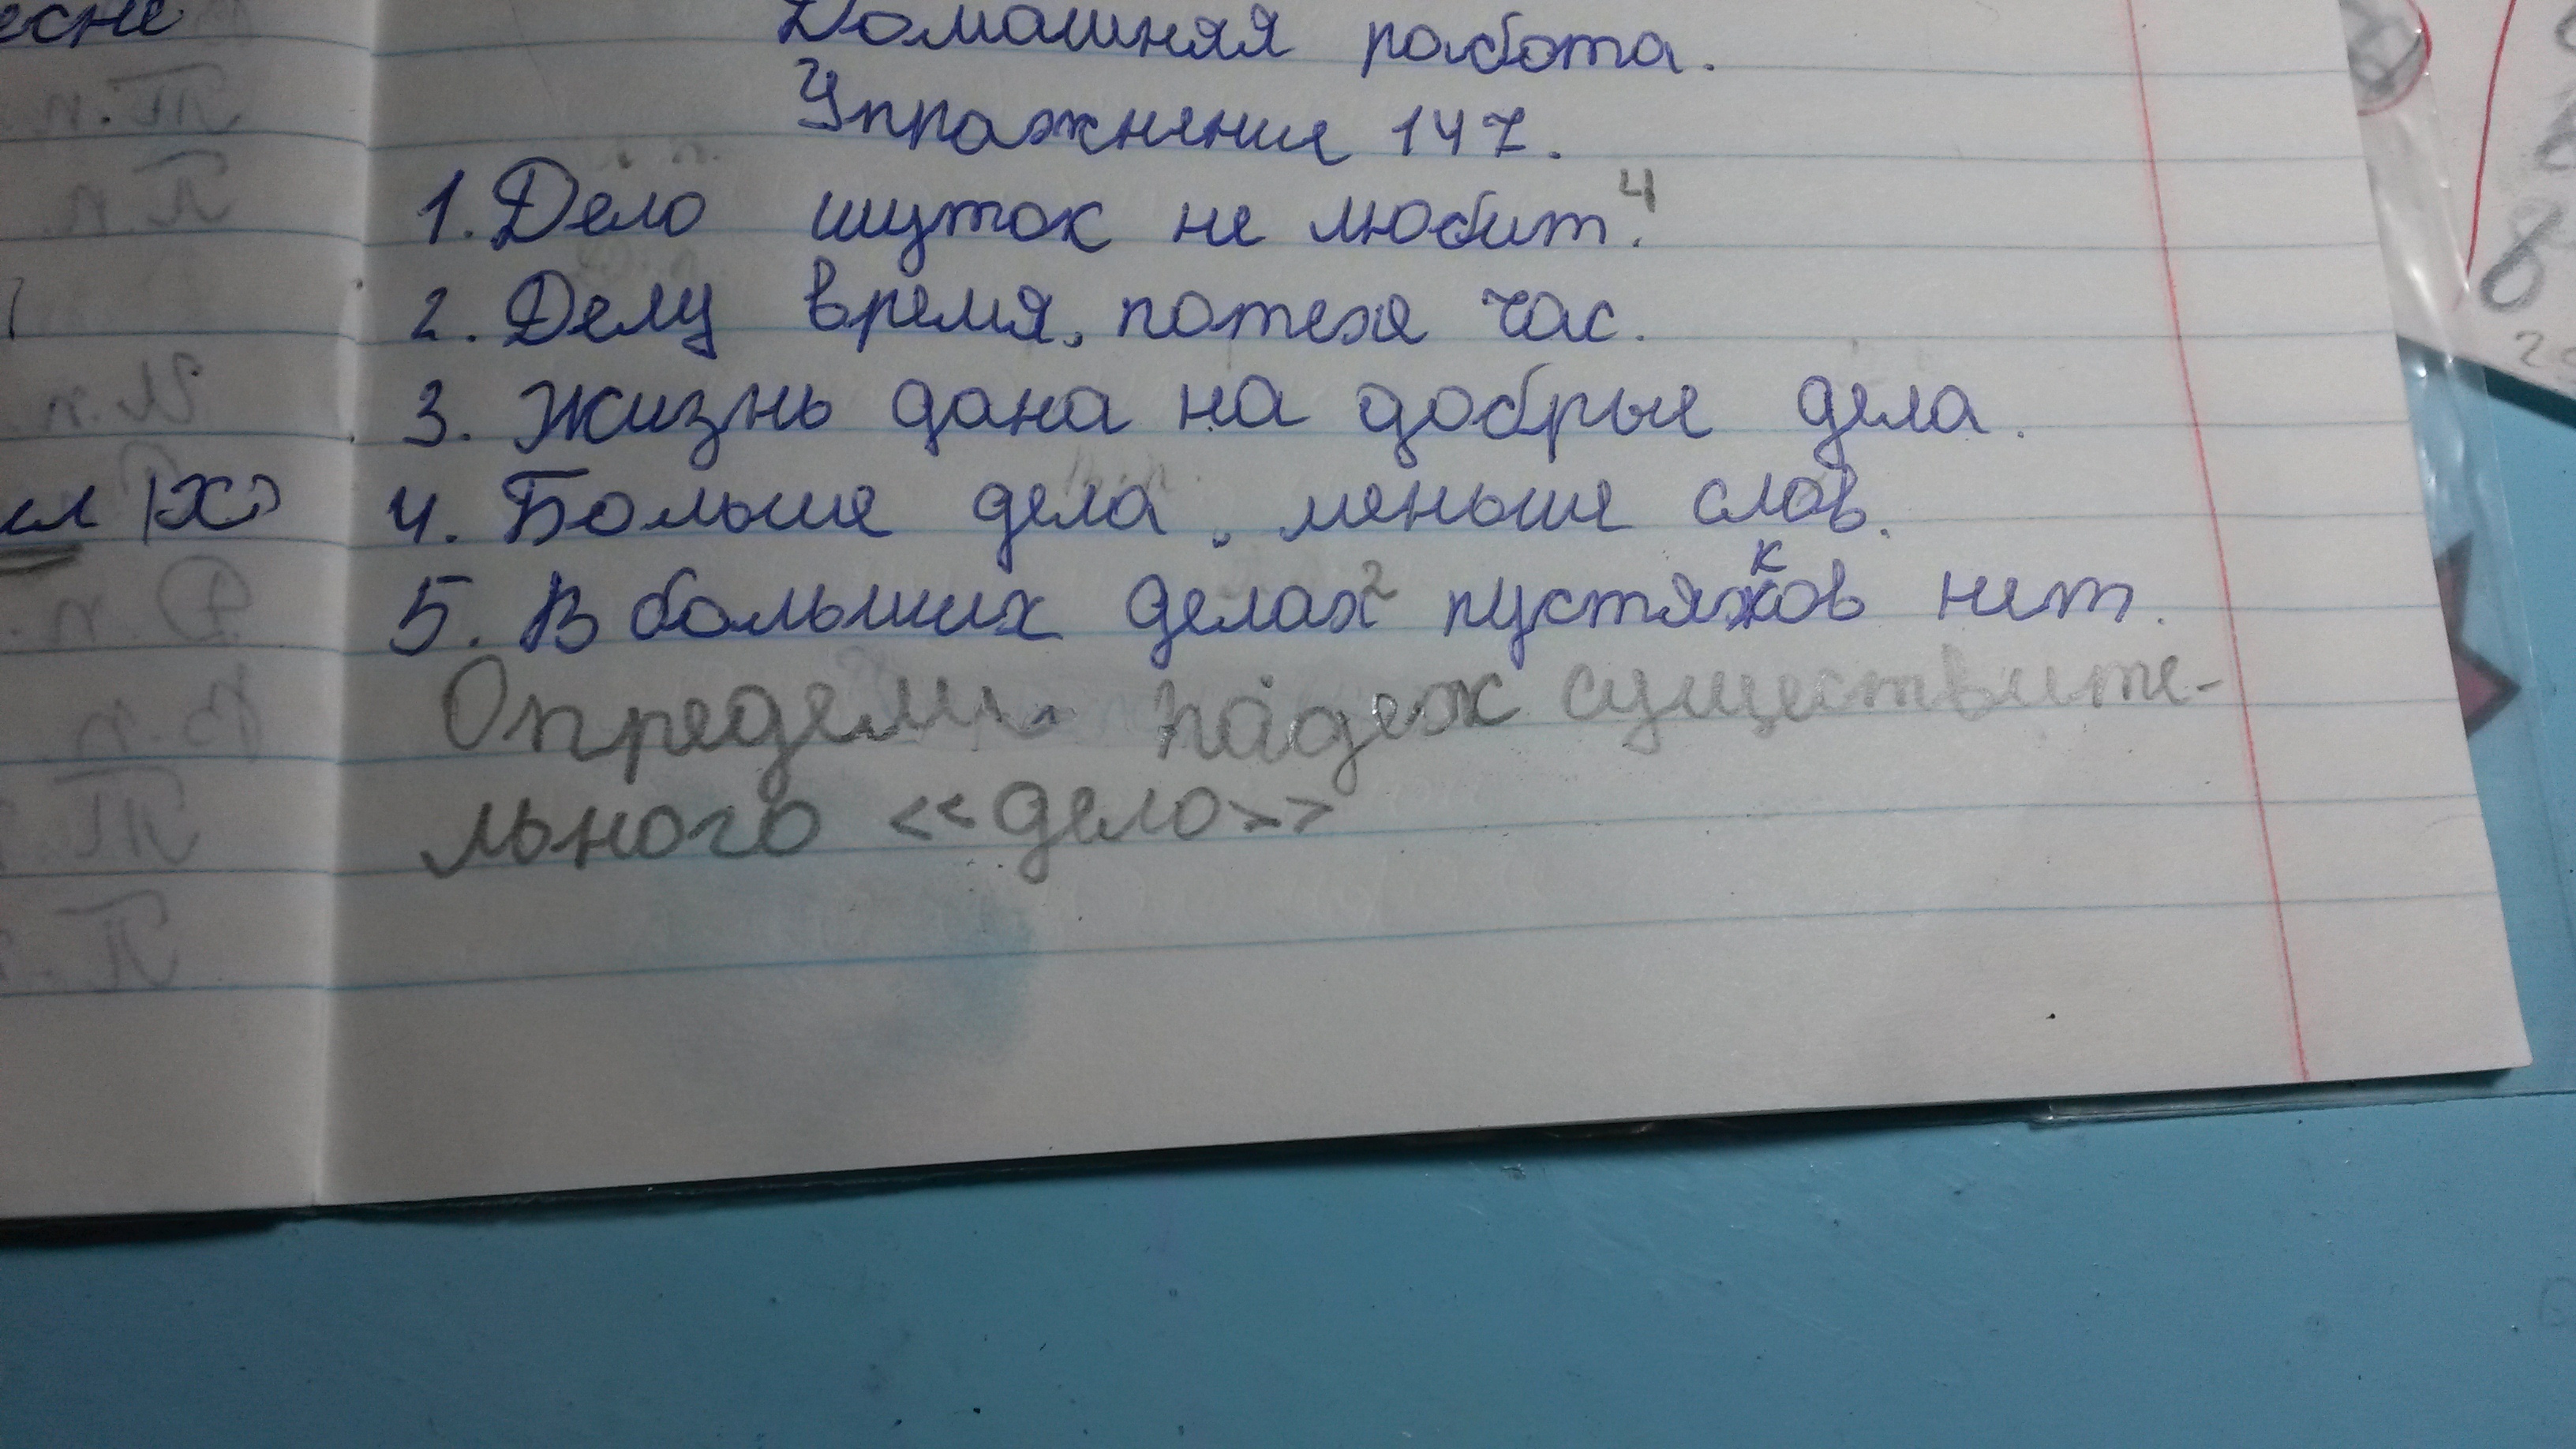 есне
Домашняя работа.
Упражнение 147.
1. Дело шуток не любит. 4
2. Делу время, потехе час.
3. Жизнь дана на добрые дела.
ил |X>
4. Больше дела, меньше слов.
5. В больших делах 2 пустяков нет.
Определи падеж существите-
льного «дело»